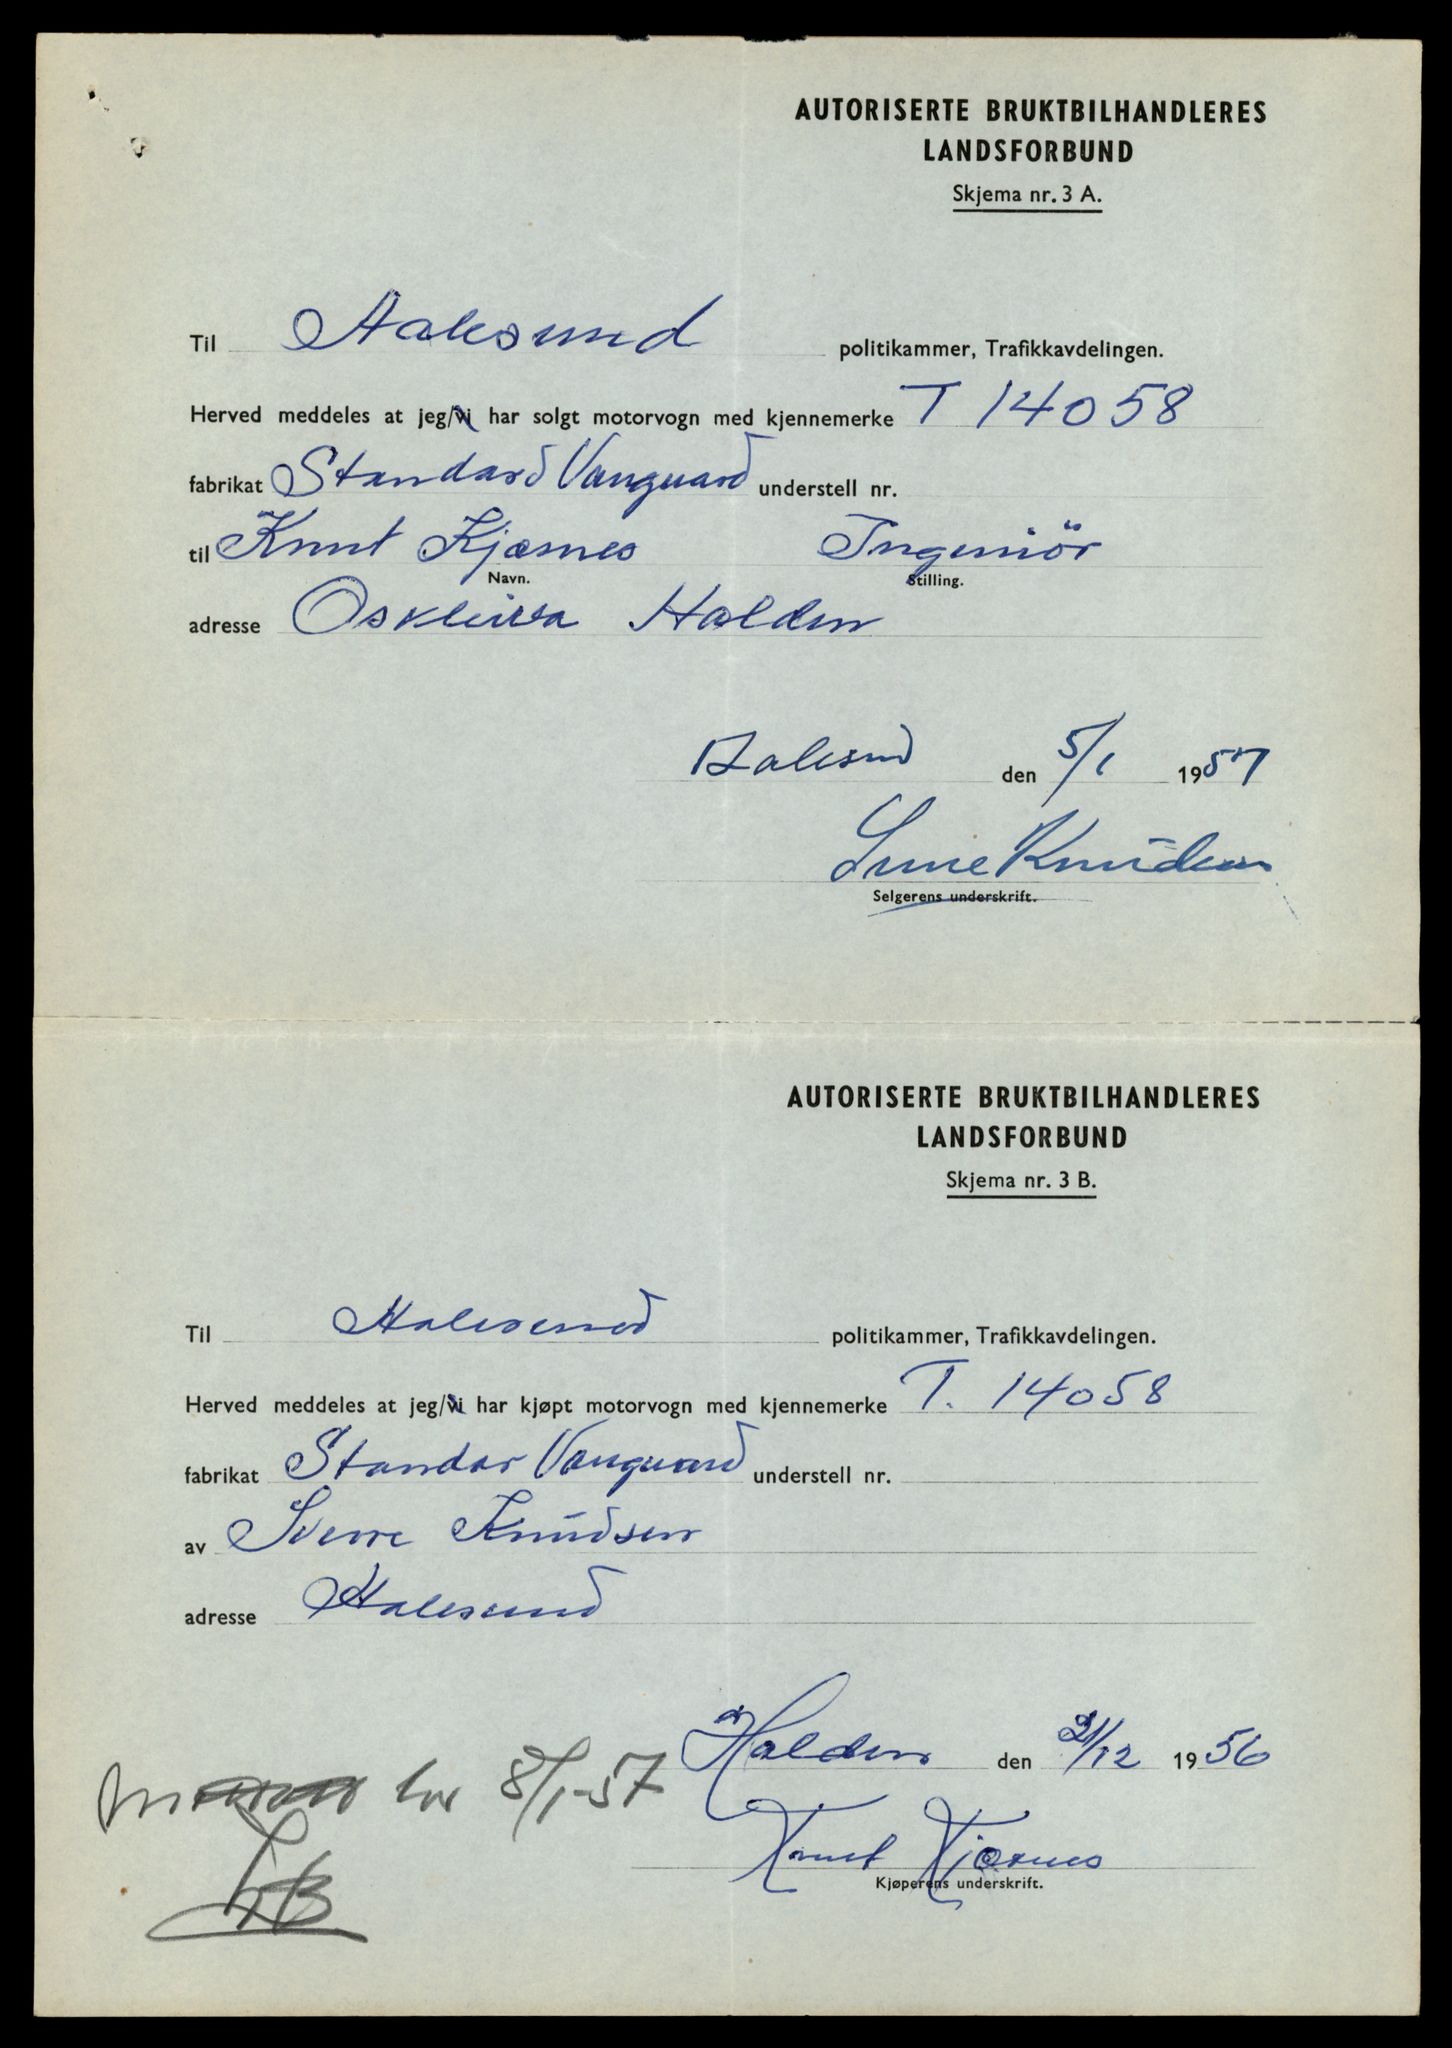 AUTORISERTE BRUKTBILHANDLERES
LANDSFORBUND
Skjema nr. 3 A.
Til Aalesund politikammer, Trafikkavdelingen.
Herved meddeles at jeg/vi har solgt motorvogn med kjennemerke T 14058
fabrikat Standard Vanguard understell nr.
til Knut Kjærnes Ingeniör
Navn. Stilling.
adresse Halden
Aalesund den 5/1 1957
Sverre Knudsen
Selgerens underskrift.
AUTORISERTE BRUKTBILHANDLERES
LANDSFORBUND
Skjema nr. 3 B.
Til Aalesund politikammer, Trafikkavdelingen.
Herved meddeles at jeg/vi har kjøpt motorvogn med kjennemerke T. 14058
fabrikat Standar Vanguard understell nr.
av Sverre Knudsen
adresse Aalesund
Halden den 21/12 1956
8/1-57
Knut Kjærnes
Kjøperens underskrift.